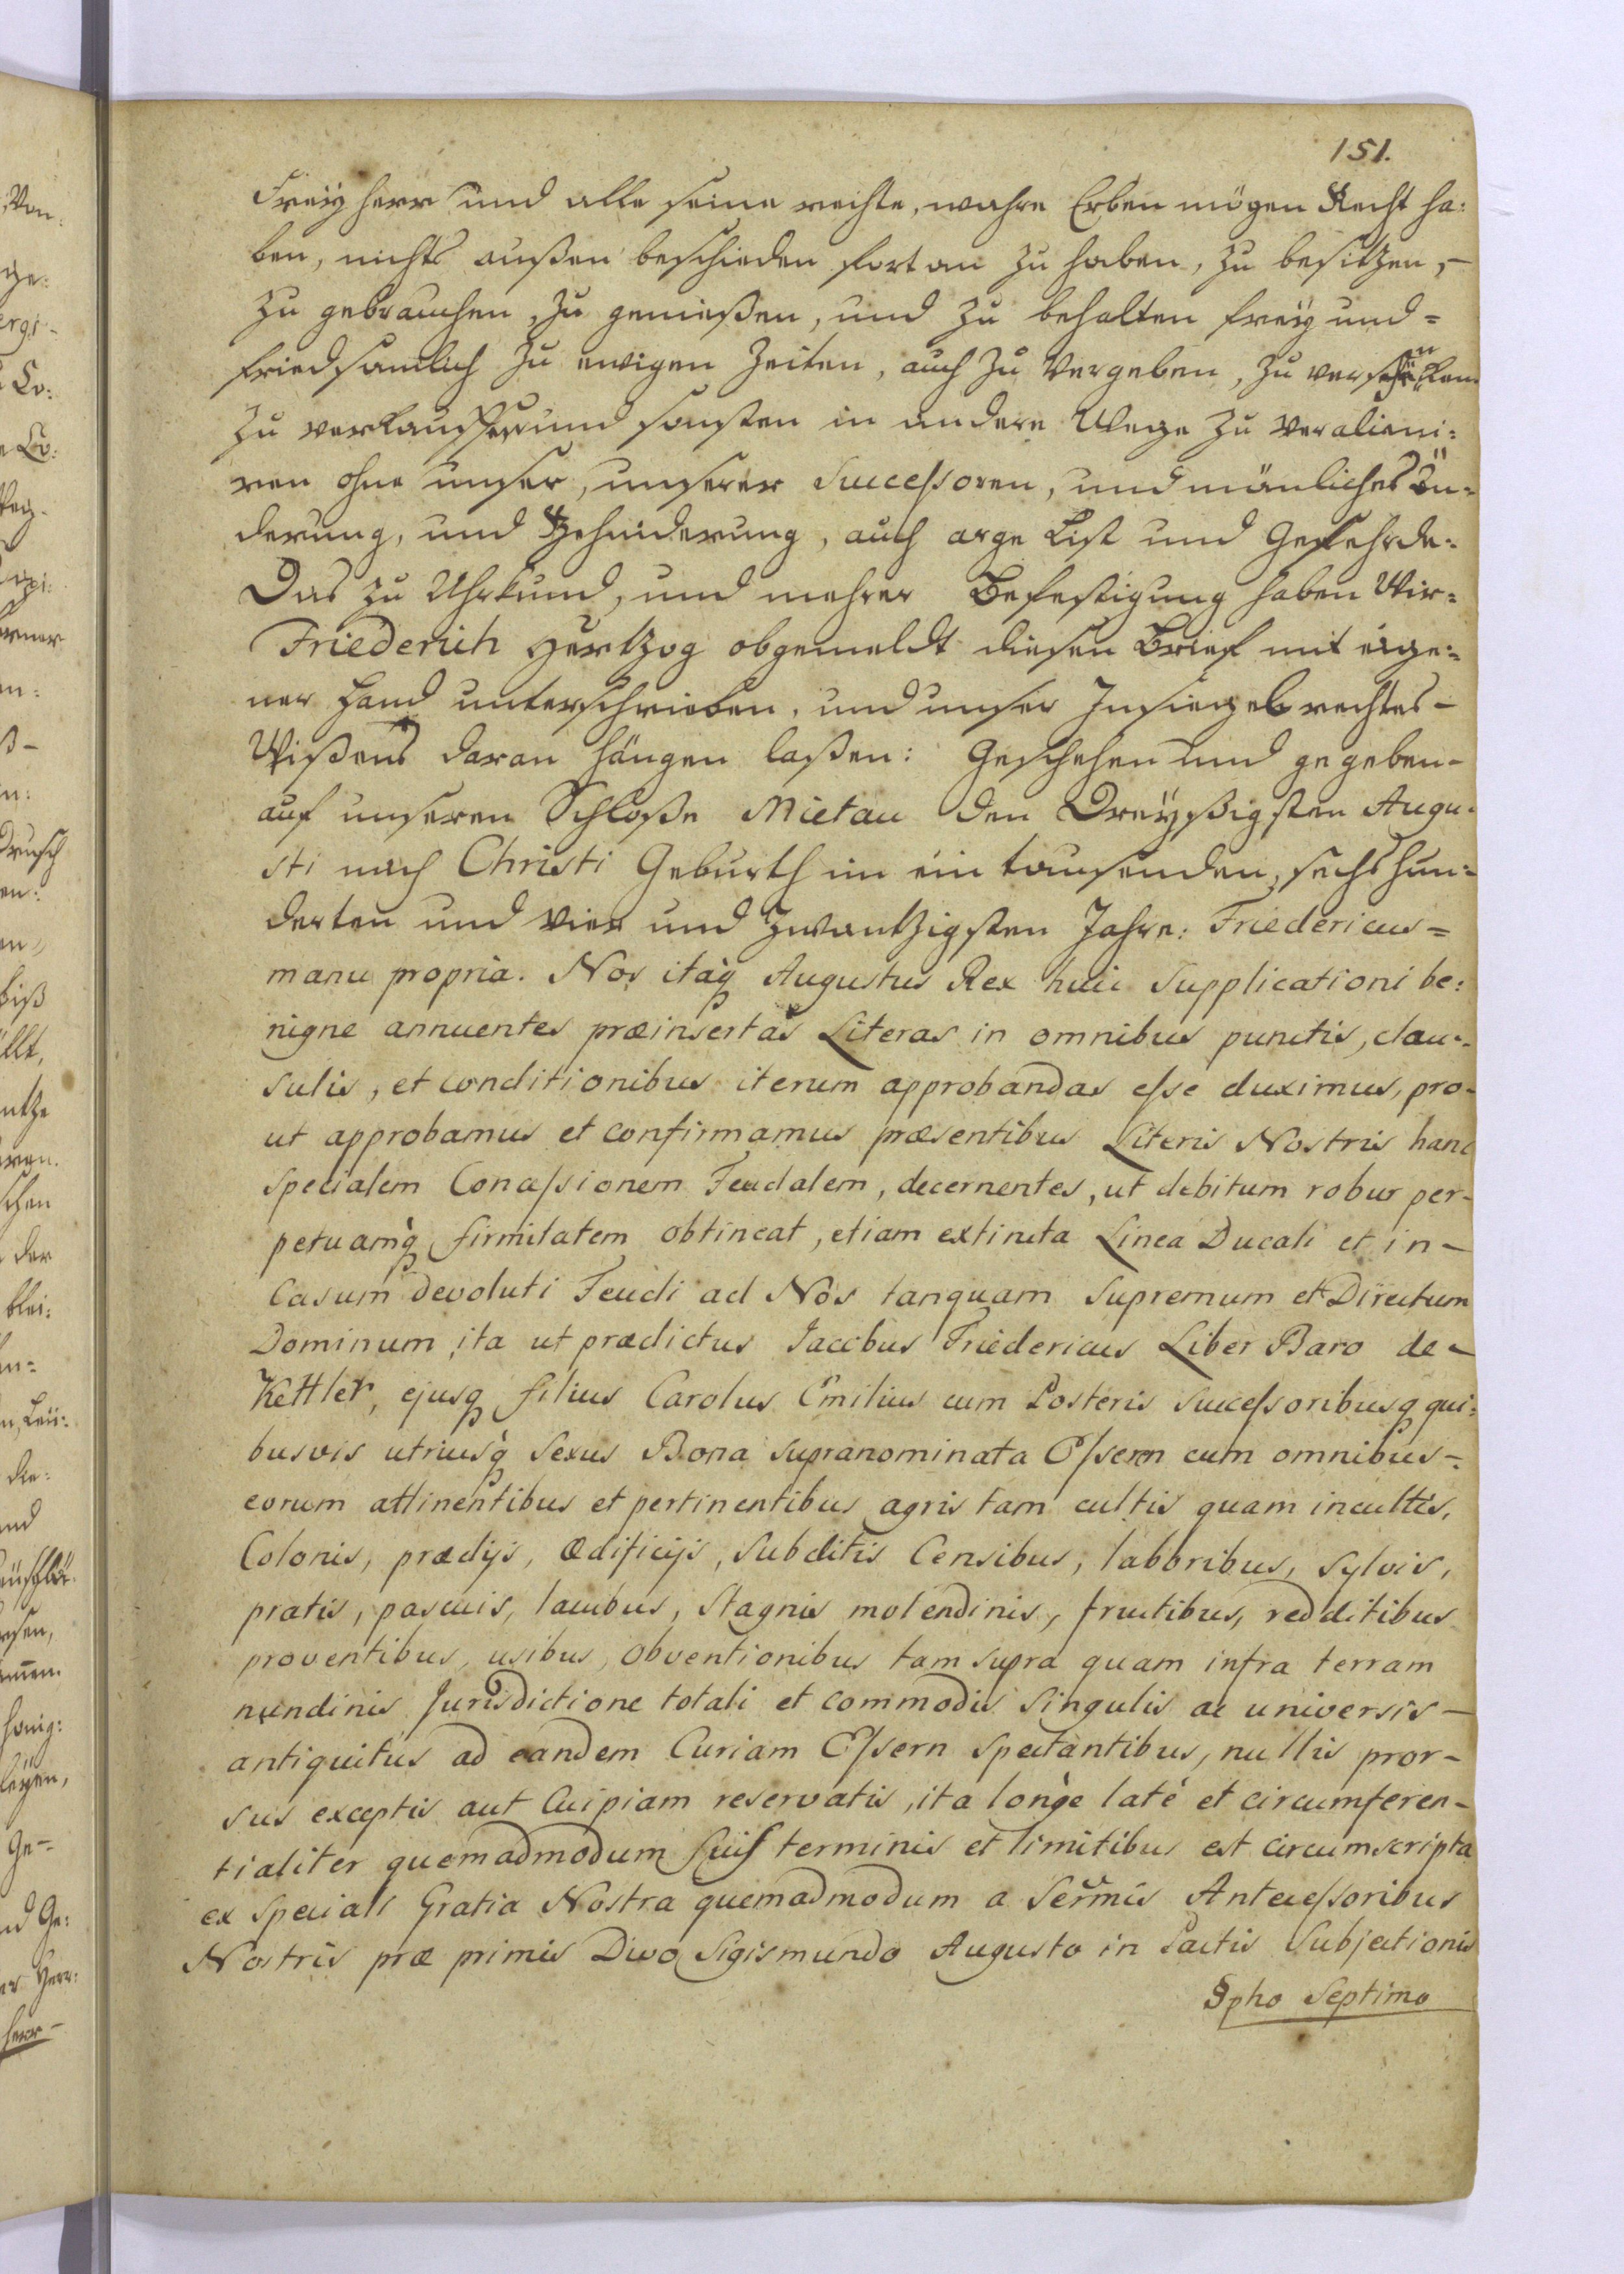 151.
Freÿherr und alle seine rechte, wahre Erben mögen Recht ha:
ben, nichts außen beschieden fortan zu haben, zu besitzen, –
zu gebrauchen, zu genießen, und zu behalten freÿ und =
friedsamlich zu ewigen Zeiten, auch zu Vergeben, zu verschenken
zu verkauffen und sonsten in andere Wege zu veralieni:
ren ohne unser, unserer Successoren, und mäniliches Än:
derung, und Behinderung, auch arge List und Gefehrde.
Das zu Uhrkund, und mehrer Befestigung haben Wir =
Friederich Hertzog obgemeldt diesen Brief mit eige:
ner Hand unterschrieben, und unser Insiegel rechtes –
Wißens daran hängen laßen: Geschehen und gegeben –
auf unseren Schloße Mietau den Dreÿßigsten Augu:
sti nach Christi Geburth im ein tausenden, sechs hun:
derten und vier und zwantzigsten Jahre: Friedericus =
manu propria. Nos itaq Augustus Rex huic Supplicationi be:
nigne annuentes præinsertas Literas in omnibus punctis, clau:
sulis, et conditionibus iterum approbandas esse duximus, pro-
ut approbamus et confirmamus præsentibus Literis Nostris hanc
specialem Concessionem Feudalem, decernentes, ut debitum robur per-
petuamq firmitatem obtineat, etiam extincta Linea Ducali et in –
Casum devoluti Feudi ad Nos tanquam Supremum et Directum
Dominum ita ut prædictus Jacobus Friedericus Liber Baro de –
Kettler, ejusq filius Carolus Emilius cum Posteris Successoribusq qui:
busvis utriusq Sexus Bona supranominata Essern cum omnibus –
eorum attinentibus et pertinentibus agris tam cultis quam incultis,
Colonis, prædijs, ædificijs, Subditis Censibus, laboribus, Sylvis,
pratis, pascuis, lacubus, Stagnis molendinis, fructibus, redditibus
proventibus, usibus, obventionibus tam supra quam infra terram
nundinis Jurisdictione totali et commodis singulis ac universis –
antiquitus ad eandem Curiam Essern spectantibus, nullis pror-
sus exceptis aut Cuipiam reservatis, ita longè latè et circumferen-
tialiter quemadmodum suis terminis et limitibus est circumscripta
ex Speciali Gratia Nostra quemadmodum a Sermis Antecessoribus
Nostris præ primis Divo Sigismundo Augusto in Pactis Subjectionis
§pho Septimo